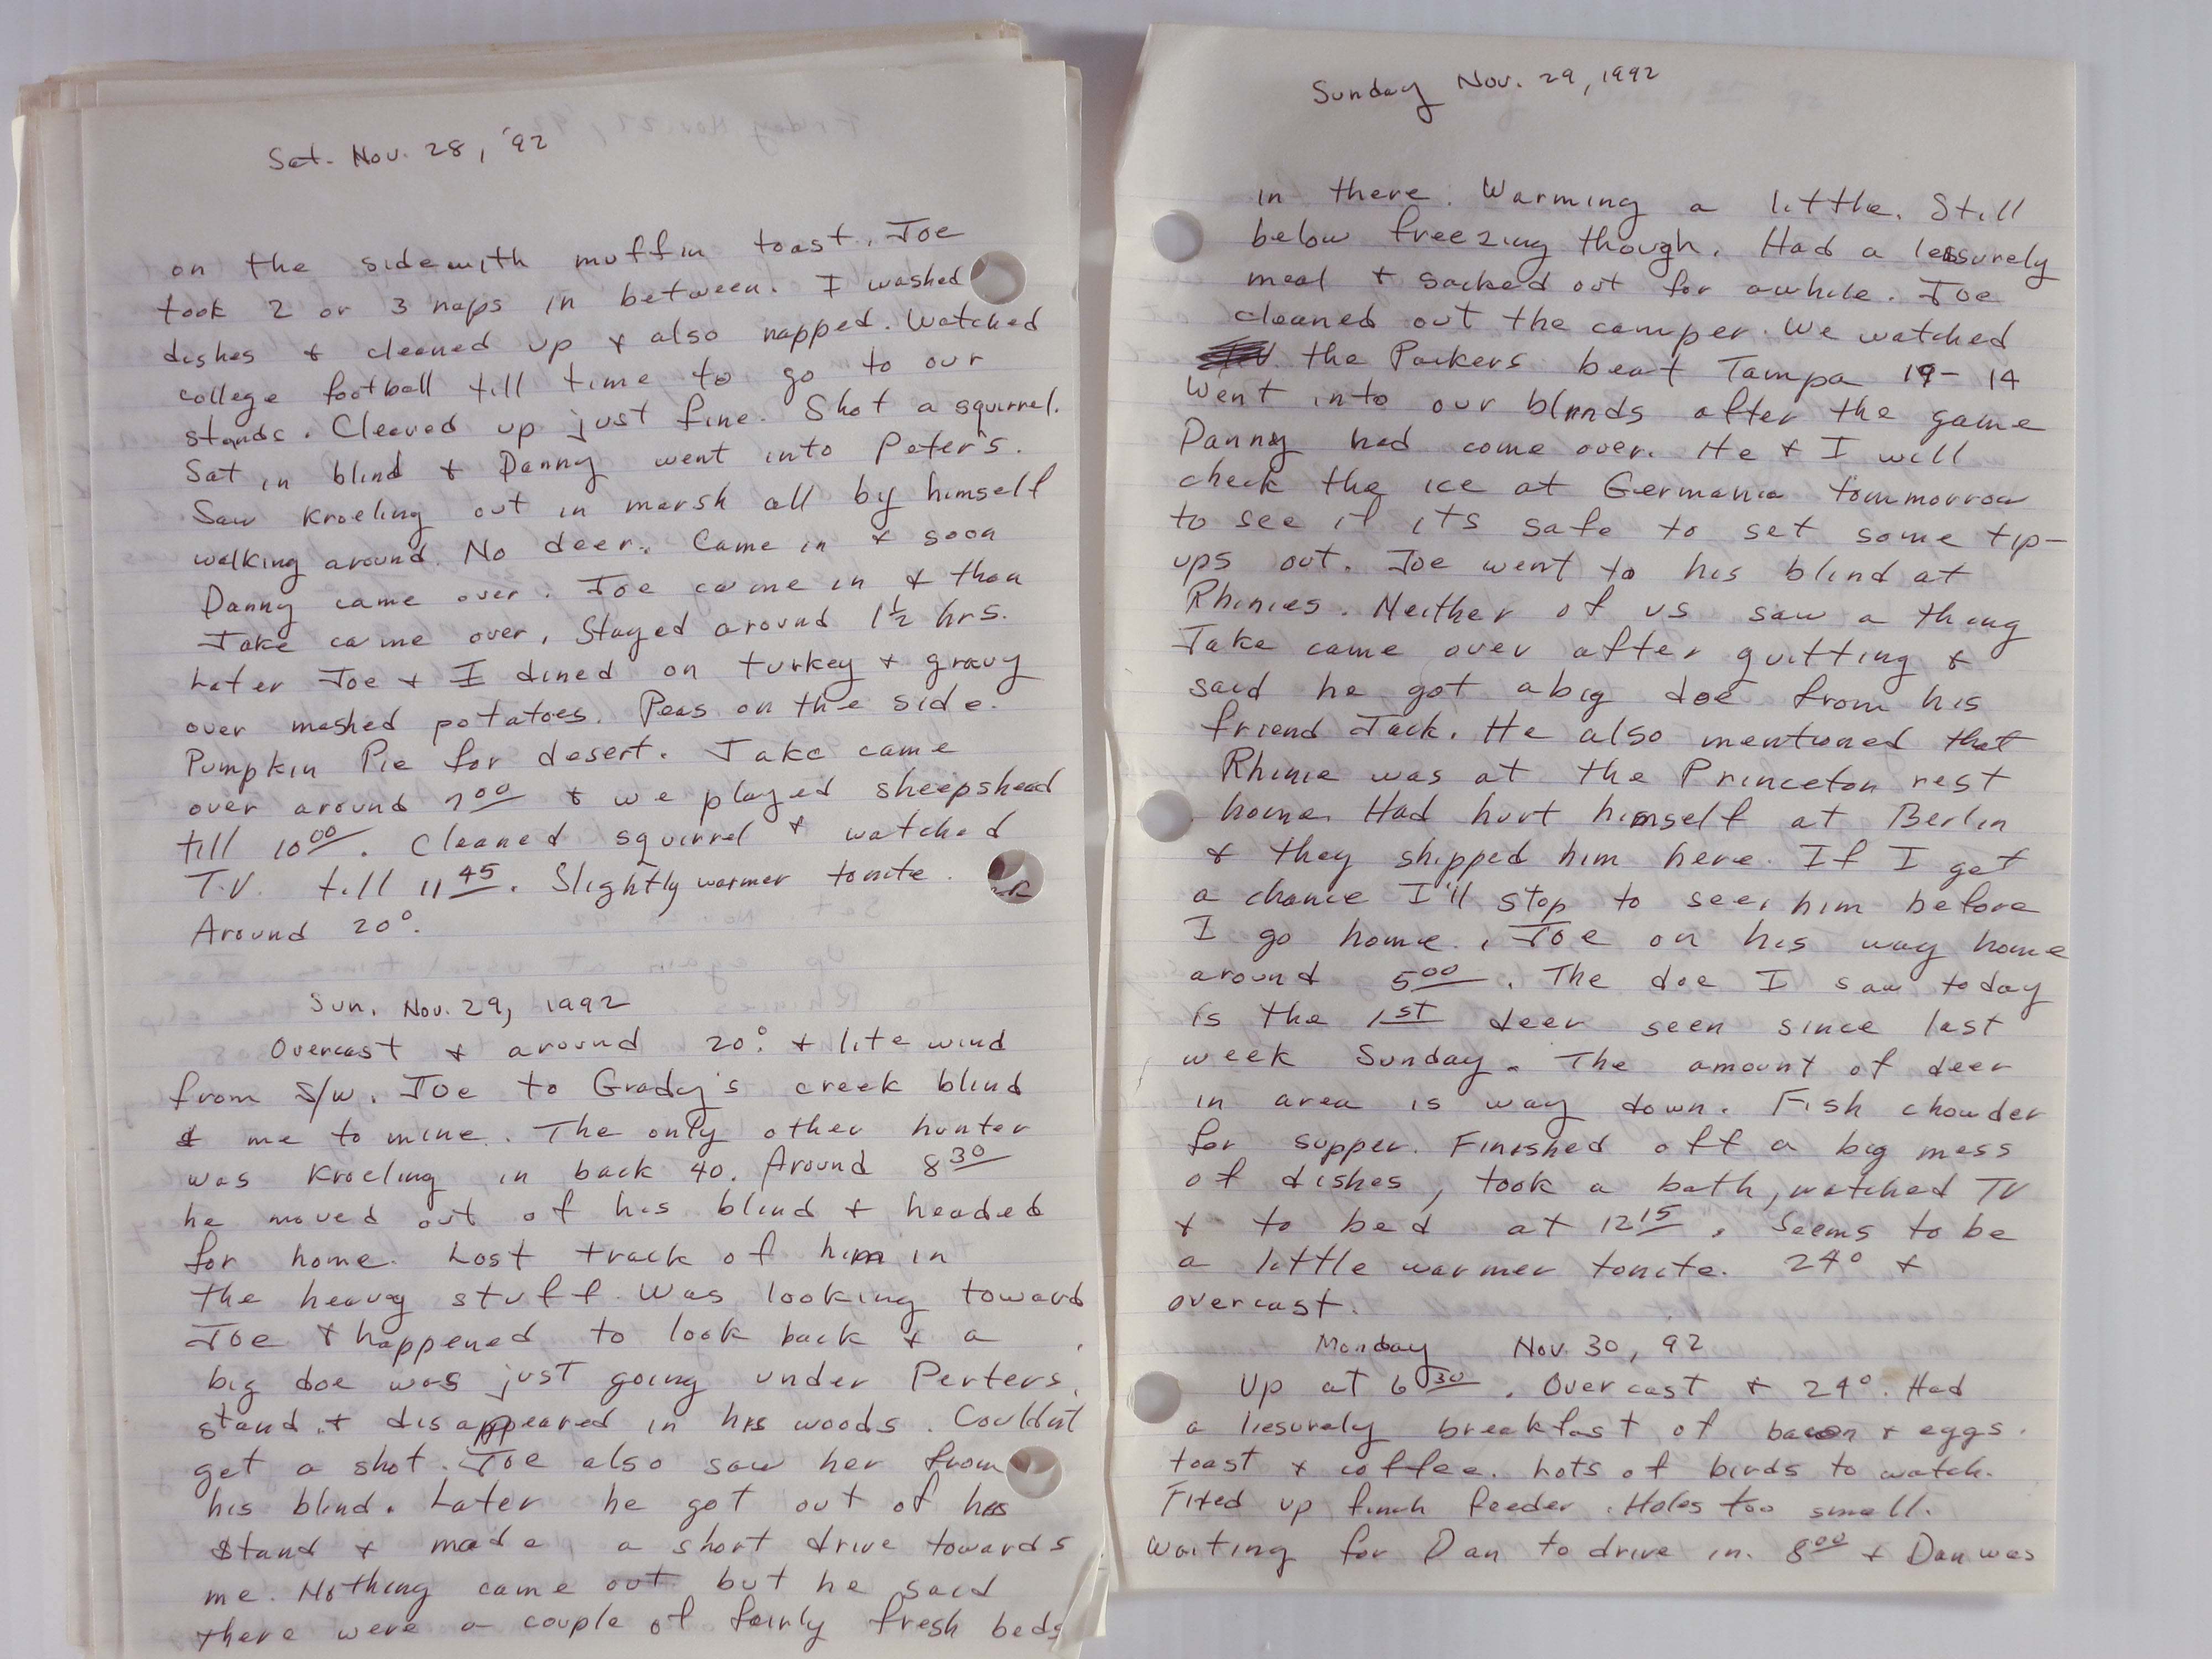 Sat. Nov. 28, '92
on the side with muffin toast. Joe
took 2 or 3 naps in between. I washed
dishes & cleaned up & also napped. Watched
college football till time to go to our
stands. Cleared up just fine. Shot a squirrel.
Sat in blind & Danny went into Peter's.
Saw Kroeling out in marsh all by himself
walking around. No deer. Came in & soon
Danny came over. Joe came in & then
Jake came over. Stayed around 1½ hrs.
Later Joe & I dined on turkey & gravy
over mashed potatoes. Peas on the side.
Pumpkin Pie for desert. Jake came
over around 7⁰⁰ & we played sheepshead
till 10⁰⁰. Cleaned squirrel & watched
T.V. till 11⁴⁵. Slightly warmer tonite.
Around 20°.
Sun. Nov. 29, 1992
Overcast & around 20° & lite wind
from S/W. Joe to Grady's creek blind
& me to mine. The only other hunter
was Kroeling in back 40. Around 8³⁰
he moved out of his blind & headed
for home. Lost track of him in
the heavy stuff. Was looking toward
Joe & happened to look back & a
big doe was just going under Perters
stand & disappeared in his woods. Couldn't
get a shot. Joe also saw her from
his blind. Later he got out of his
stand & made a short drive towards
me. Nothing came out but he said
there were a couple of fairly fresh beds
Sunday Nov. 29, 1992
in there. Warming a little. Still
below freezing though. Had a leisurely
meal & sacked out for awhile. Joe
cleaned out the camper. We watched
the Packers beat Tampa 19-14
Went into our blinds after the game
Danny had come over. He & I will
check the ice at Germania tommorrow
to see if its safe to set some tip-
ups out. Joe went to his blind at
Rhinies. Neither of us saw a thing
Jake came over after quitting &
said he got a big doe from his
friend Jack. He also mentioned that
Rhinie was at the Princeton rest
home. Had hurt himself at Berlin
& they shipped him here. If I get
a chance I'll stop to see him before
I go home. Joe on his way home
around 5⁰⁰. The doe I saw today
is the 1st deer seen since last
week Sunday. The amount of deer
in area is way down. Fish chowder
for supper. Finished off a big mess
of dishes, took a bath, watched TV
& to bed at 12¹⁵. Seems to be
a little warmer tonite. 24° &
overcast.
Monday Nov. 30, 92
Up at 6³⁰. Overcast & 24°. Had
a liesurely breakfast of bacon & eggs.
toast & coffee. Lots of birds to watch.
Fixed up finch feeder. Holes too small.
Waiting for Dan to drive in. 8⁰⁰ & Dan was